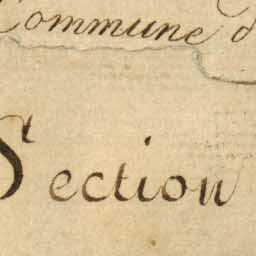 Commune d
Section